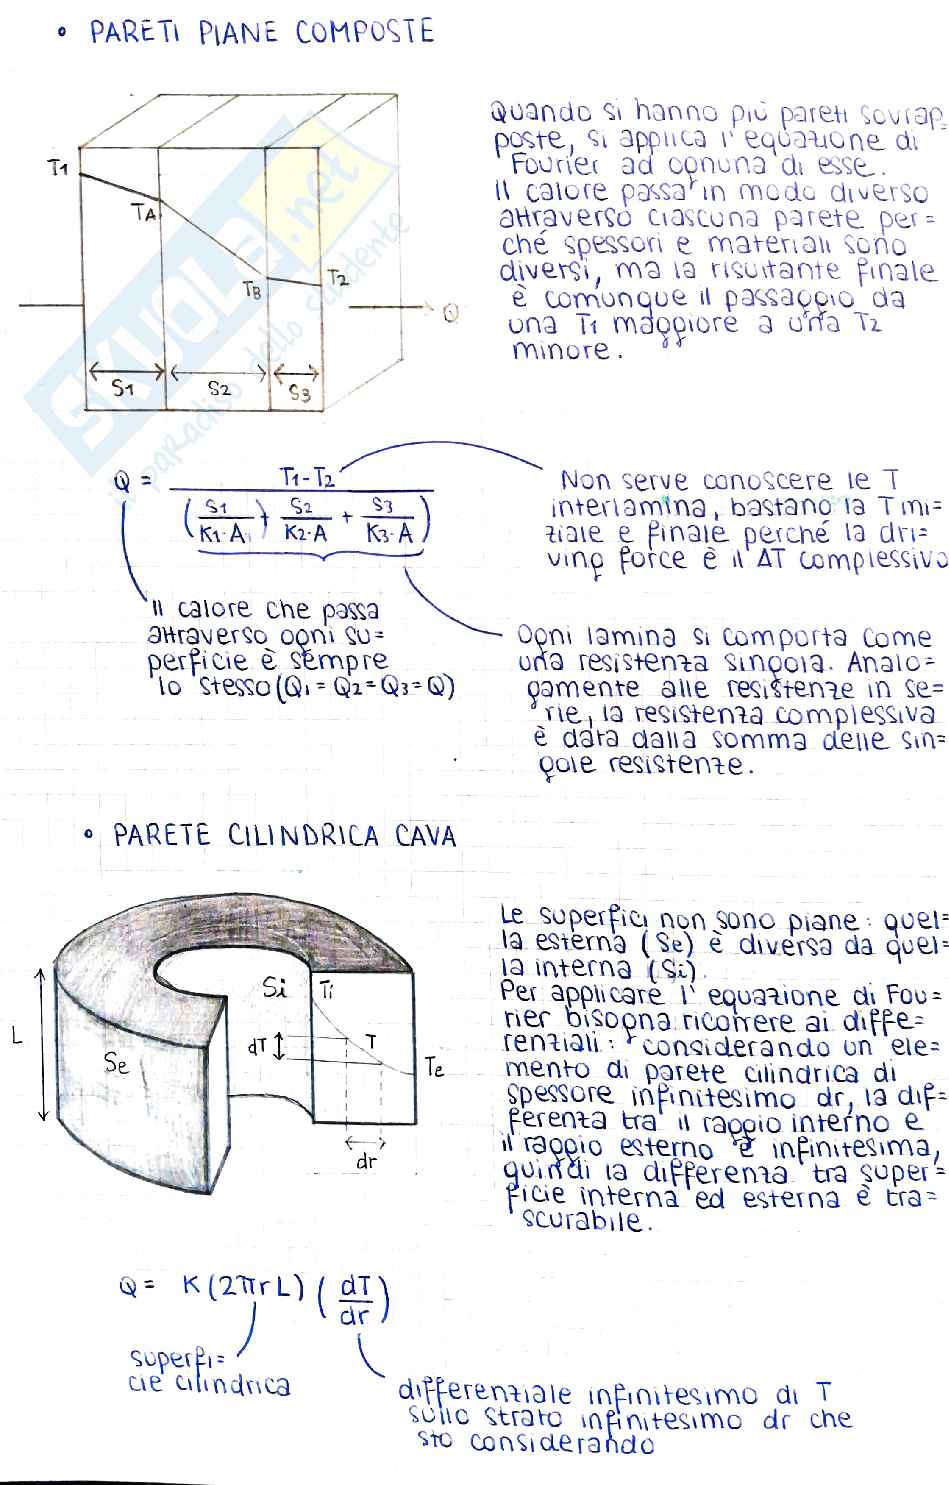 • PARETI PIANE COMPOSTE
Quando si hanno più pareti sovrap=
poste, si applica l'equazione di
Fourier ad ognuna di esse.
Il calore passa in modo diverso
attraverso ciascuna parete per=
ché spessori e materiali sono
diversi, ma la risultante finale
è comunque il passaggio da
una T1 maggiore a una T2
minore.
T1
TA
TB
T2
Q
S1
S2
S3
SKUOLA.net
il paradiso dello studente
Q = T1-T2 / ((S1/K1·A) + S2/K2·A + S3/K3·A)
Non serve conoscere le T
interlamina, bastano la T ini=
ziale e finale perché la dri=
ving force è il ΔT complessivo
Il calore che passa
attraverso ogni su=
perficie è sempre
lo stesso (Q1=Q2=Q3=Q)
Ogni lamina si comporta come
una resistenza singola. Analo=
gamente alle resistenze in se=
rie, la resistenza complessiva
è data dalla somma delle sin=
gole resistenze.
• PARETE CILINDRICA CAVA
L
Se
Si
Ti
dT
T
Te
dr
Le superfici non sono piane: quel=
la esterna (Se) è diversa da quel=
la interna (Si).
Per applicare l'equazione di Fou=
rier bisogna ricorrere ai diffe=
renziali: considerando un ele=
mento di parete cilindrica di
spessore infinitesimo dr, la dif=
ferenza tra il raggio interno e
il raggio esterno è infinitesima,
quindi la differenza tra super=
ficie interna ed esterna è tra=
scurabile.
Q = K(2πrL)(dT/dr)
superfi=
cie cilindrica
differenziale infinitesimo di T
sullo strato infinitesimo dr che
sto considerando